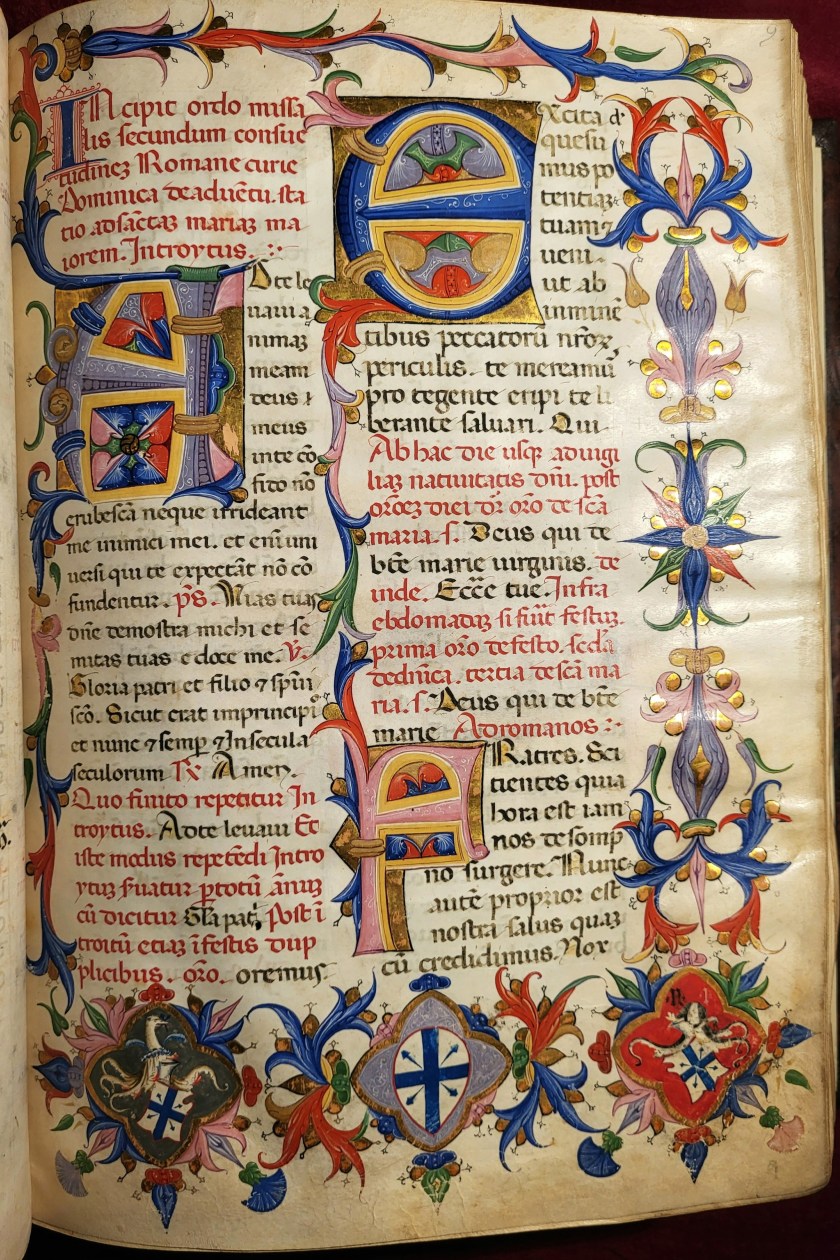 Incipit ordo missa
lis secundum consue
tudinez Romane curie
Dominica de aduētu. sta
tio ad sāctaz mariaz ma
iorem. Introytus.
Ad te le
uaui a
nimaz
meam
deus
meus
in te cō
fido nō
erubescā neque irrideant
me inimici mei. et eniɜ uni
uersi qui te expectāt nō cō
fundentur. ps. Uias tuas
dn̄e demostra michi et se
mitas tuas edoce me. V.
Gloria patri et filio ⁊ spūi
scō. Sicut erat in principi
et nunc ⁊ semp̱ ⁊ In secula
seculorum Amen.
Quo finito repetitur In
troytus. Ad te leuaui Et
iste modus repetēdi Intro
ytuz seruatur p̱ totū ānuz
cū dicitur Gl̄a pat. Post ī
troitū etiaz ī festis dup
plicibus. oro. oremus
Excita
quesu
mus po
tentiaz
tuam ⁊
ueni.
ut ab
inminē
tibus peccatorū nr̄oꝝ
periculis. te mereamū
pro tegente eripi te li
berante saluari. Qui
Ab hac die usqꝫ ad uigi
liaz natiuitatis dn̄i. post
orōez diei dr̄ oro de scā
maria. s. Deus qui de
bt̄e marie uirginis. de
inde. Eccē tue. Infra
ebdomadaz si fūit festuz.
prima oro de festo. scd̄a
de dn̄ica. tercia de scā ma
ria. s. Deus qui de bt̄e
marie Ad romanos
FRatres. Sci
entes quia
hora est iam
nos de somp
no surgere. Nunc
autē proprior est
nostra salus quaz
cū credidimus. Nox